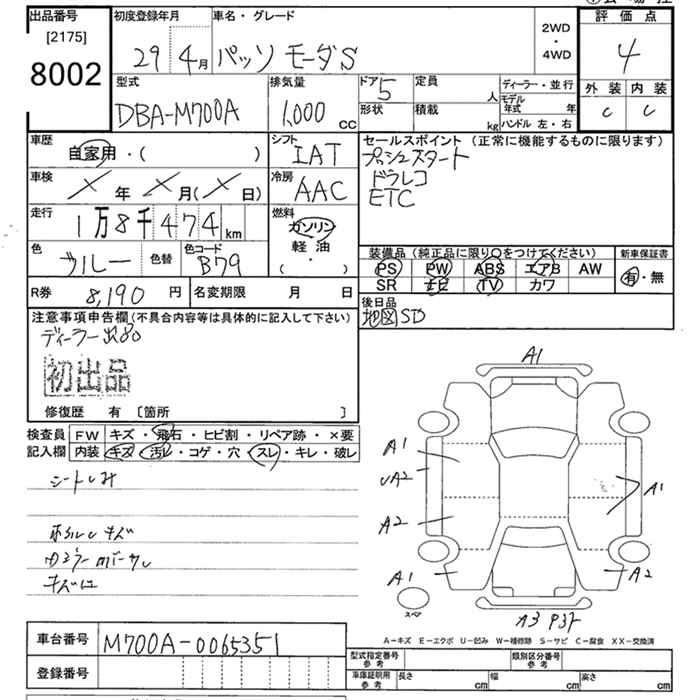 出品番号
[2175]
8002
初度登録年月
29年 4月
車名・グレード
パッソ モーダS
2WD
・
4WD
評価点
4
外装 内装
C C
型式
DBA-M700A
排気量
1,000 CC
ドア 5
形状
定員 人
積載 kg
ディーラー・並行
モデル年式 年
ハンドル 左・右
車歴
自家用・( )
車検
× 年 × 月(× 日)
走行
1万8千474km
色
ブルー
色替
色コード
B79
シフト
IAT
冷房
AAC
燃料
ガソリン
軽・油
( ・ )
セールスポイント (正常に機能するものに限ります)
プッシュスタート
ドラレコ
ETC
装備品(純正品に限り○をつけてください)
PS PW ABS エアB AW
SR ナビ TV カワ
新車保証書
有・無
後日品
地図SD
R券 8,190 円
名変期限 月 日
注意事項申告欄(不具合内容等は具体的に記入して下さい)
初出品
修復歴 有 〔箇所 〕
検査員記入欄
FW キズ・飛石・ヒビ割・リペア跡・×要
内装 キズ・汚レ・コゲ・穴・スレ・キレ・破レ
シートしみ
A1
A1
UA2
A2
A1
A1
A2
スペア
A3 P3
A-キズ E-エクボ U-凹み W-補修跡 S-サビ C-腐食 XX-交換済
車台番号 M700A-0065351
登録番号
型式指定番号 参考
類別区分番号 参考
車庫証明用 参考
長さ cm
幅 cm
高さ cm